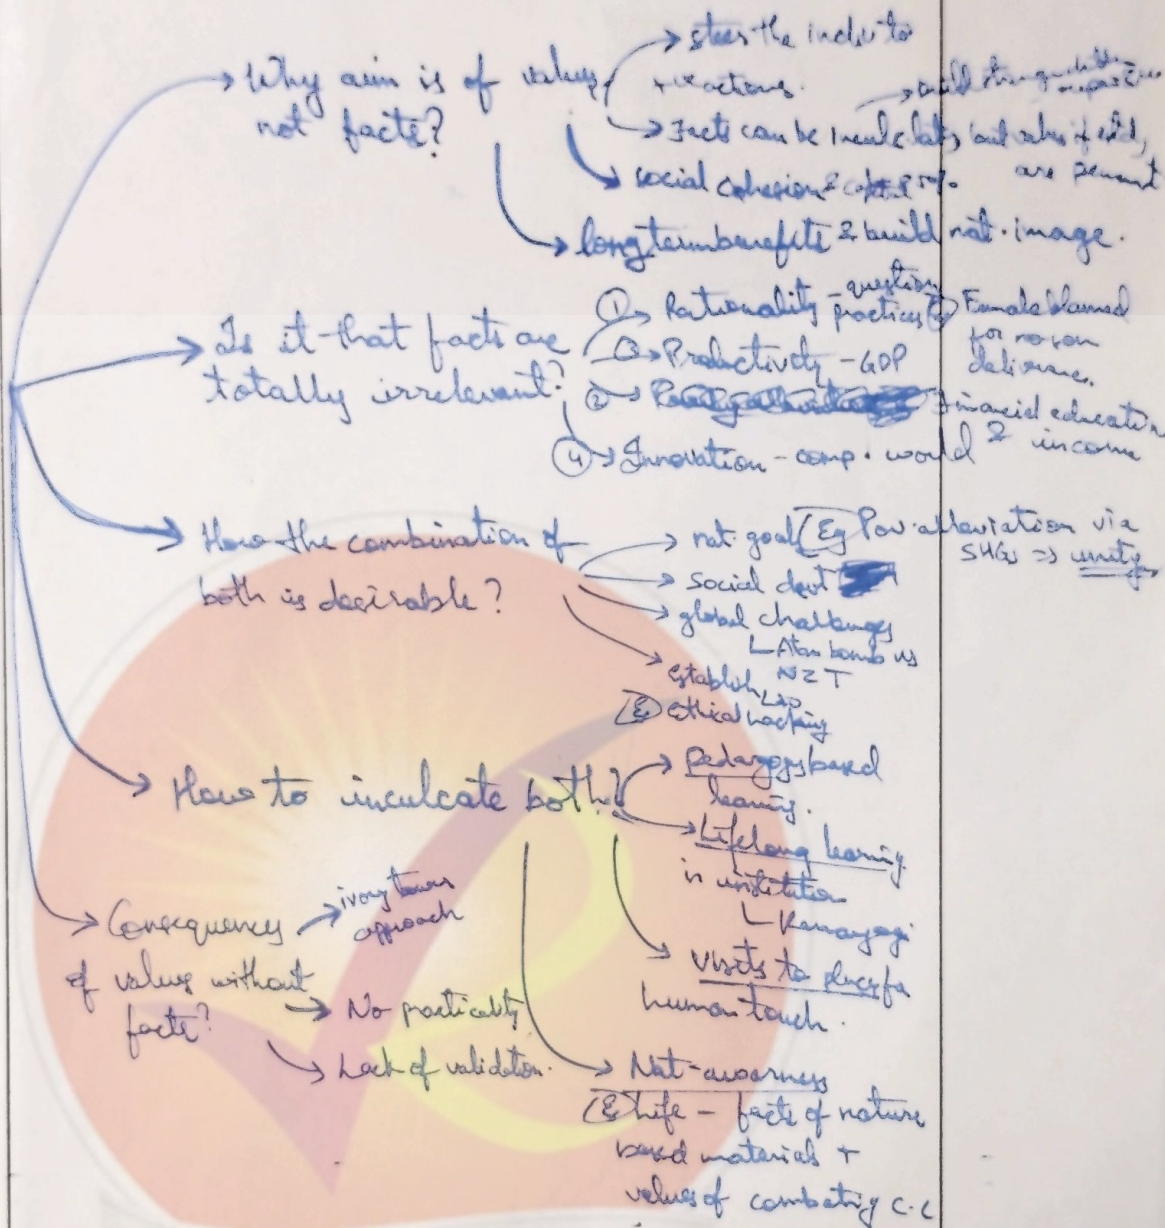 Why aim is of values
not facts?
→ steer the indiv to
+ve actions.
→ Facts can be inculcated, but values if
are
→ social cohesion &
→ long term benefits & build nat. image.
→ Is it that facts are
totally irrelevant?
① → Rationality - question
practices → Female blamed
for no son
deliverance.
③ → Productivity - GDP
② → Financial education
& income
④ → Innovation - comp. world
→ How the combination of
both is desirable?
→ nat. goal (Eg Pov. alleviation via
SHGs => unity
→ social devt
→ global challenges
Atom bomb vs
NZT
→ Establish
Eg Ethical hacking
→ How to inculcate both?
→ Pedagogy based
learning.
→ Lifelong learning
in institution
Karmayogi
→ Visits to places for
human touch.
→ Nat-awarness
Eg Life - facts of nature
based materials +
values of combating C.C
→ Consequences
of values without
facts?
→ ivory tower
approach
→ No practicality
→ Lack of validation.